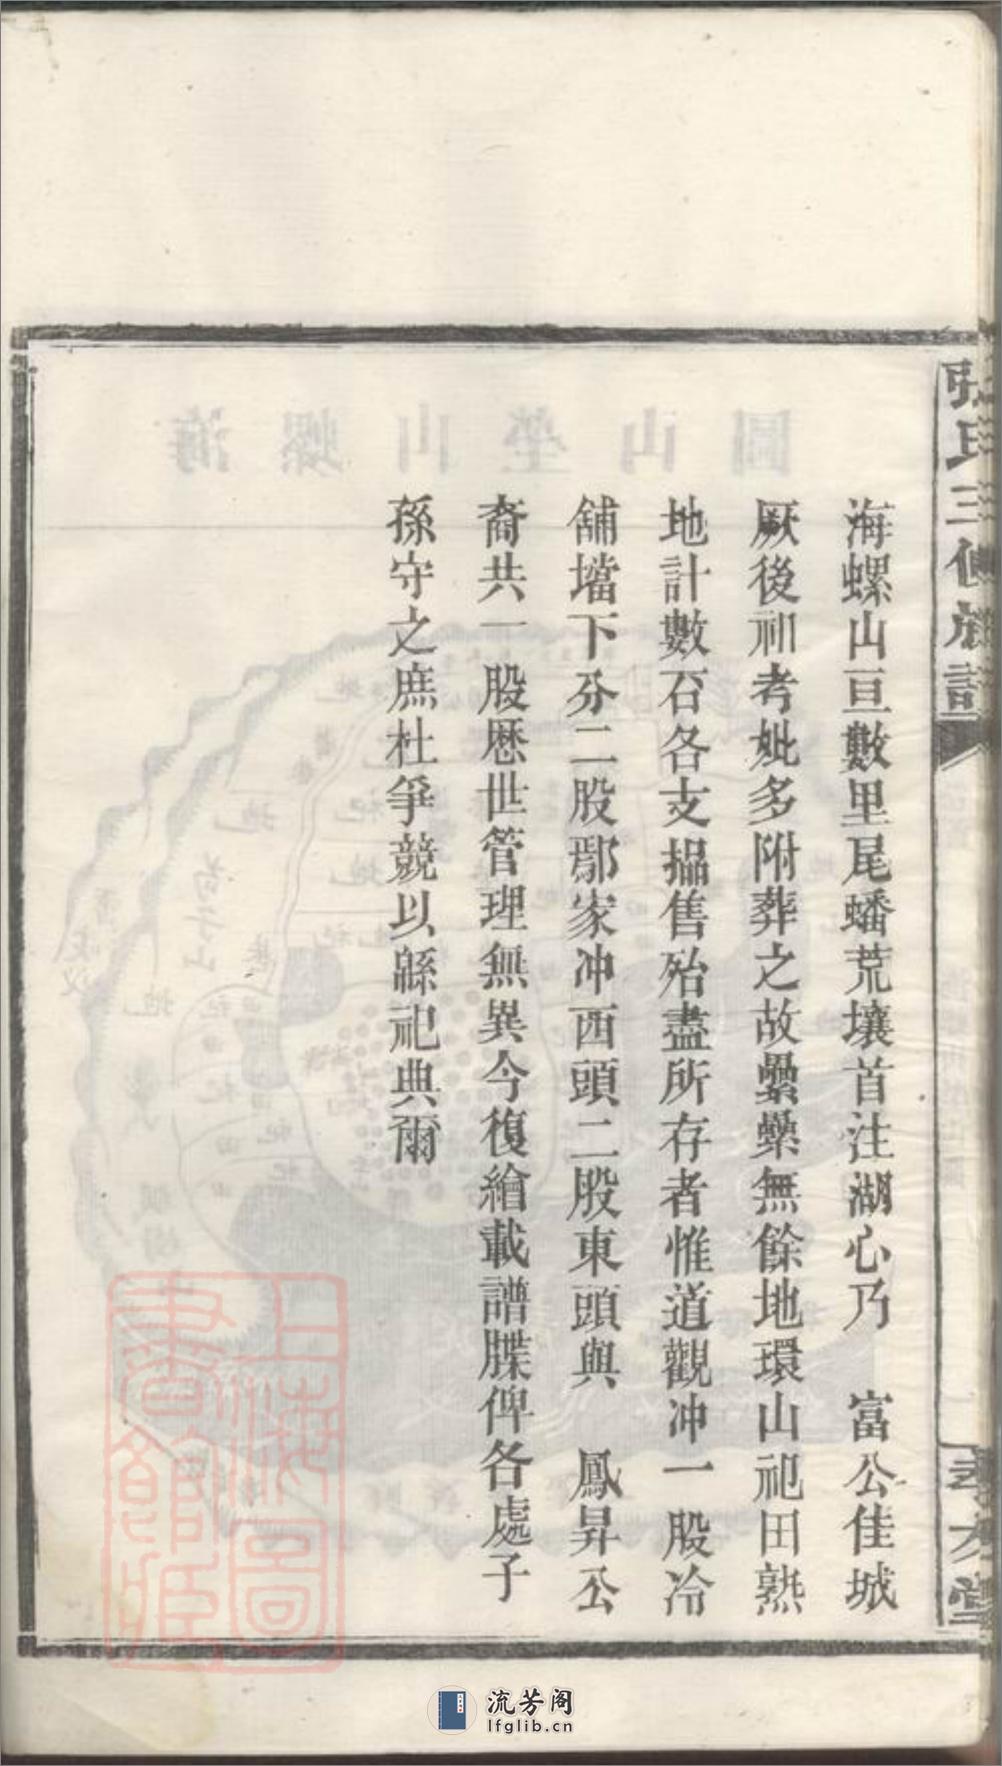 張氏三修族譜
孝友堂
海螺山亘數里尾蟠荒壤首注湖心乃　富公佳城
厥後祖考妣多附葬之故纍纍無餘地環山祀田熟
地計數石各支掘售殆盡所存者惟道觀冲一股冷
舖壋下分二股鄢家冲西頭二股東頭與　鳳昇公
裔共一股歷世管理無異今復繪載譜牒俾各處子
孫守之庶杜爭競以緜祀典爾
海螺山塋山圖
上海圖書館藏
流芳阁
lfglib.cn